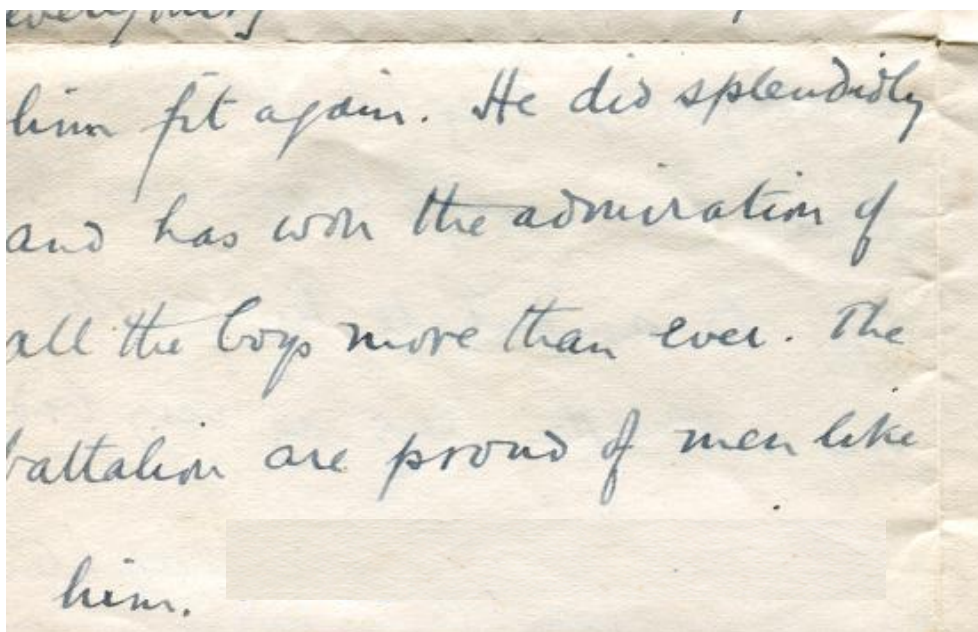 him fit again. He did splendidly
and has won the admiration of
all the boys more than ever. The
battalion are proud of men like
him.